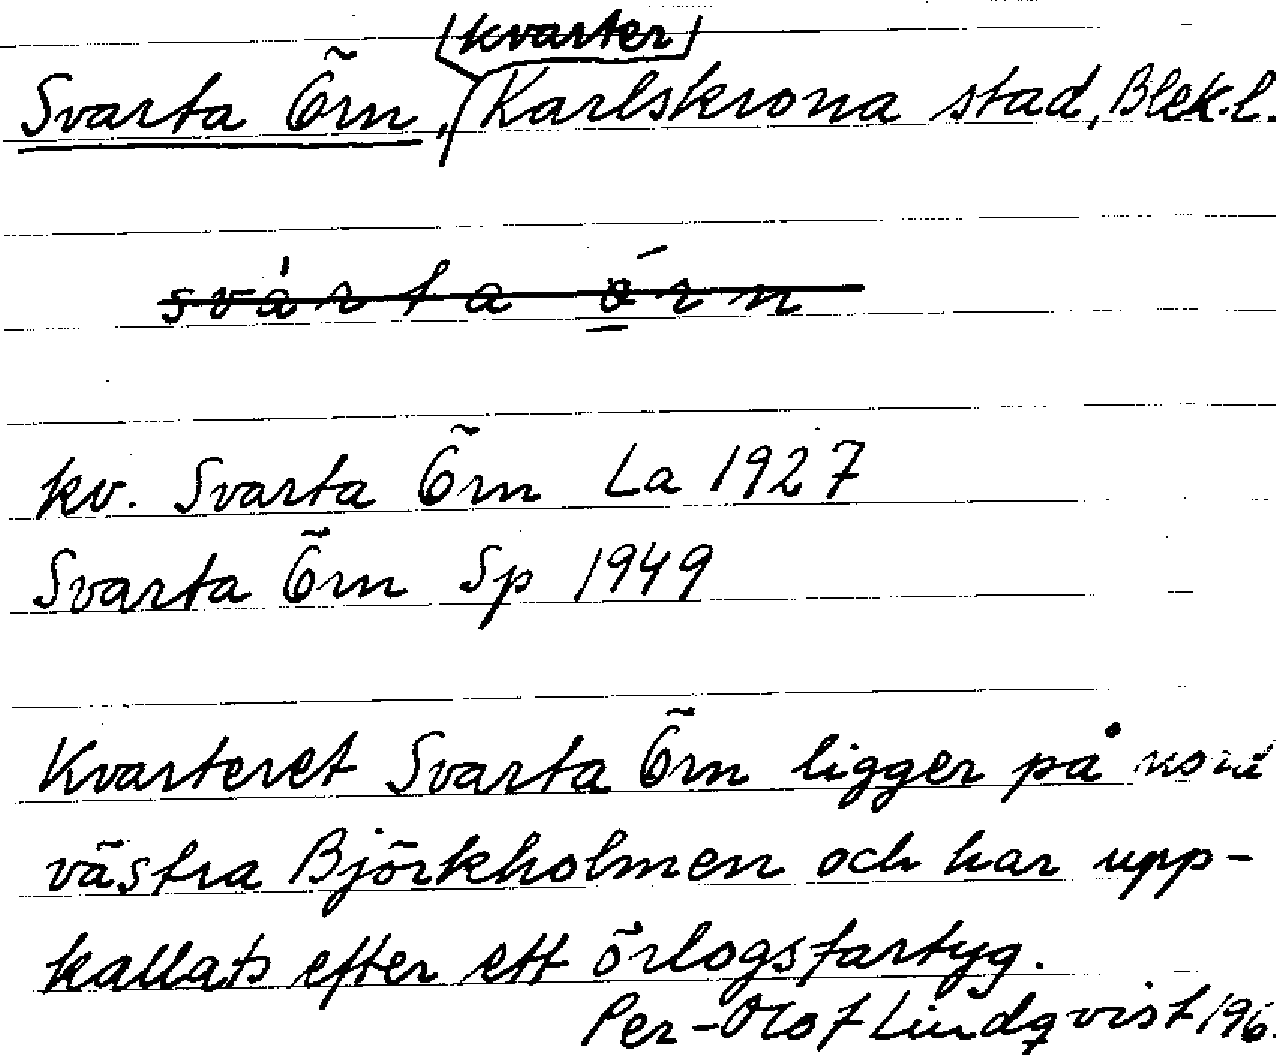 Svarta Örn, (kvarter) Karlskrona stad, Blek.l.
svárta örn
kv. Svarta Örn La 1927
Svarta Örn Sp 1949
Kvarteret Svarta Örn ligger på nord
västra Björkholmen och har upp-
kallats efter ett örlogsfartyg.
Per-Olof Lindqvist 196